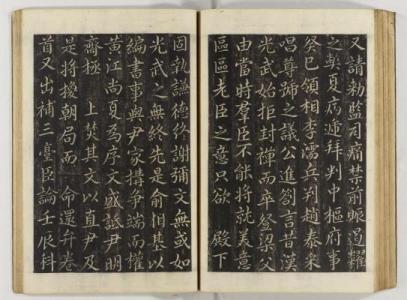 又請勅監司痛禁前賑過糶
之弊夏病遞拜判中樞府事
癸巳領相李濡兵判趙泰采
唱尊號之議公進劄言昔漢
光武始拒封禪而卒登梁父
由當時羣臣不能將順美意
區區老臣之意只欲 殿下
固執謙德終謝彌文無或如
光武之無終先是俞相基以
編書事與尹家搆爭端而權
黃江尚夏爲序文盛詆尹明
齋極 上焚其文以直尹及
是將換朝局而 命還弁卷
首又出補三臺臣論壬辰科